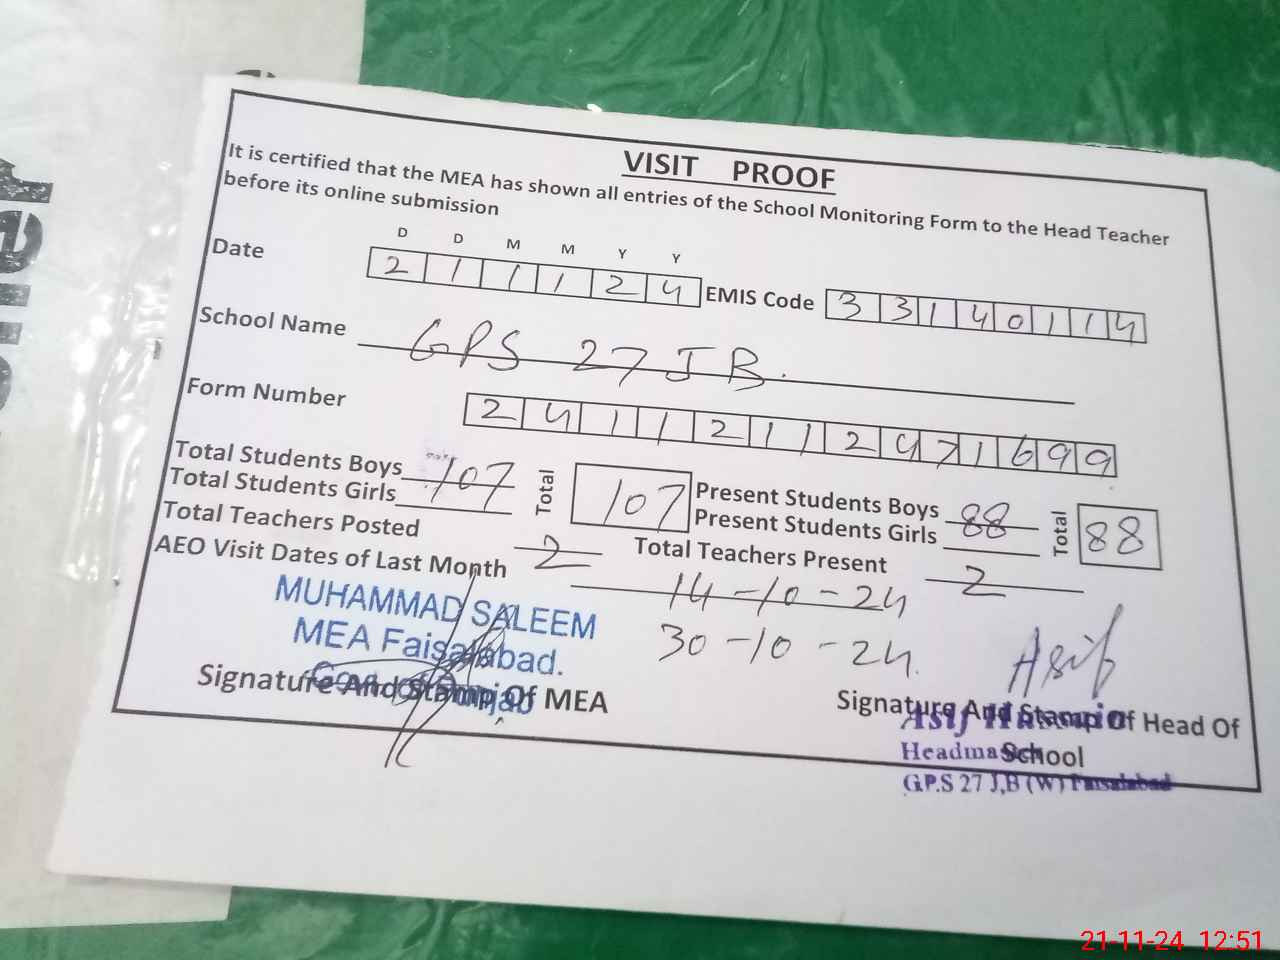 VISIT PROOF
It is certified that the MEA has shown all entries of the School Monitoring Form to the Head Teacher
before its online submission
D D M M Y Y
Date 2 1 1 1 2 4 EMIS Code 3 3 1 4 0 1 1 4
School Name GPS 27 JB.
Form Number 2 4 1 1 2 1 1 2 4 7 1 6 9 9
Total Students Boys 107 Total 107 Present Students Boys 88 Total 88
Total Students Girls Present Students Girls
Total Teachers Posted 2 Total Teachers Present 2
AEO Visit Dates of Last Month 14-10-24
30-10-24.
MUHAMMAD SALEEM
MEA Faisalabad.
Govt. of Punjab
Signature And Stamp Of MEA
Asif
Signature And Stamp Of Head Of
School
Asif Hussain
Headmaster
G.P.S 27 J,B (W) Faisalabad
21-11-24 12:51